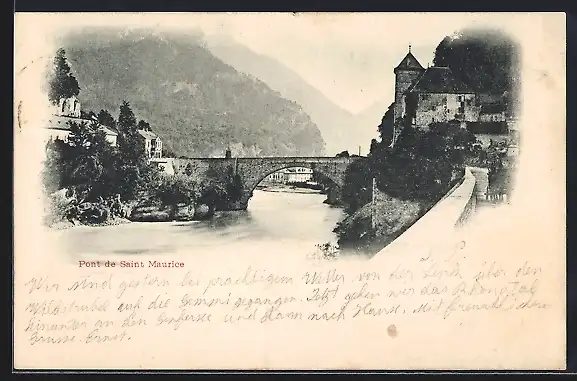 Pont de Saint Maurice
Wir sind gestern bei prachtigem Wetter von der Lenk über den
Wildstrubel auf die Gemmi gegangen. Jetzt gehen wir das Rhonetal
hinunter an den Genfersee und dann nach Haus. Mit freundlichem
Gruss Ernst.